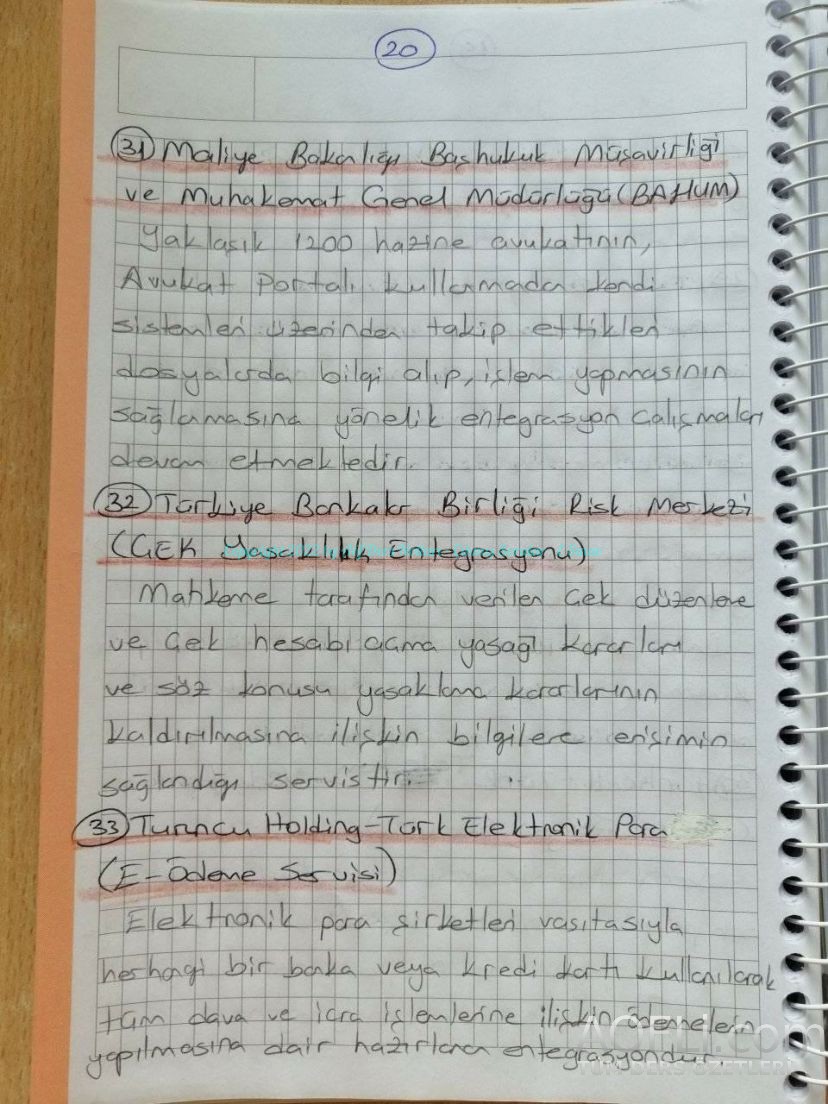 20
31) Maliye Bakanlığı Başhukuk Müşavirliği
ve Muhakemat Genel Müdürlüğü (BAHUM)
Yaklaşık 1200 hazine avukatının,
Avukat Portalı kullanmadan kendi
sistemleri üzerinden takip ettikleri
dosyalarda bilgi alıp, işlem yapmasının
sağlanmasına yönelik entegrasyon çalışmaları
devam etmektedir.
32) Türkiye Bankalar Birliği Risk Merkezi
(ÇEK Yasaklılık Entegrasyonu)
Mahkeme tarafından verilen çek düzenleme
ve çek hesabı açma yasağı kararları
ve söz konusu yasaklama kararlarının
kaldırılmasına ilişkin bilgilere erişimin
sağlandığı servistir.
33) Turuncu Holding-Türk Elektronik Para
(E-Ödeme Servisi)
Elektronik para şirketleri vasıtasıyla
herhangi bir banka veya kredi kartı kullanılarak
tüm dava ve icra işlemlerine ilişkin ödemelerin
yapılmasına dair hazırlanan entegrasyondur.